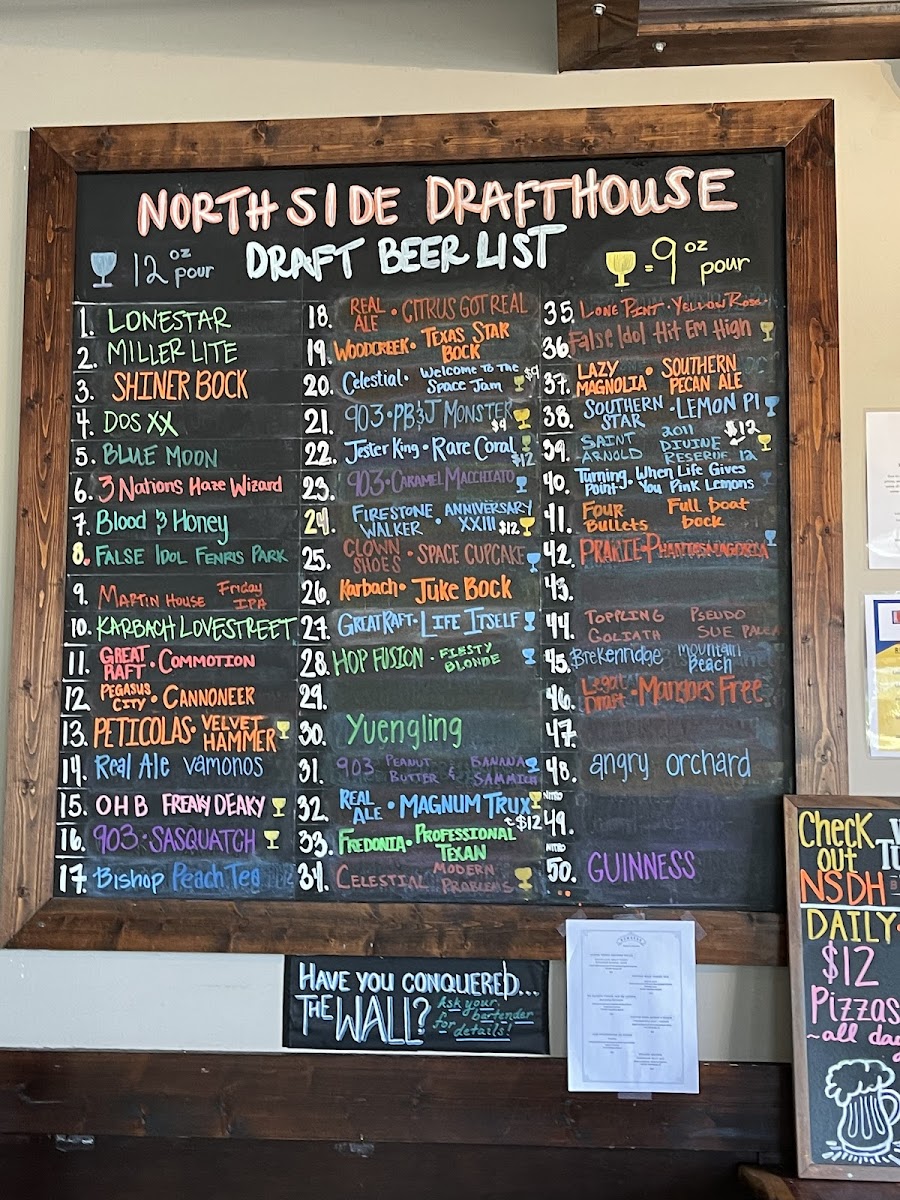 NORTH SIDE DRAFTHOUSE
DRAFT BEER LIST
12 oz pour
= 9 oz pour
1. LONESTAR
2. MILLER LITE
3. SHINER BOCK
4. DOS XX
5. BLUE MOON
6. 3 Nations Haze Wizard
7. Blood & Honey
8. FALSE IDOL FENRIS PARK
9. MARTIN HOUSE Friday
IPA
10. KARBACH LOVESTREET
11. GREAT
RAFT • COMMOTION
12. PEGASUS
CITY • CANNONEER
13. PETICOLAS • VELVET
HAMMER
14. Real Ale vamonos
15. OHB FREAKY DEAKY
16. 903 • SASQUATCH
17. Bishop Peach Tea
18. REAL
ALE • CITRUS GOT REAL
19. WOODCREEK • TEXAS STAR
BOCK
20. Celestial • WELCOME TO THE
SPACE JAM $9
21. 903 • PB&J MONSTER
$9
22. Jester King • Rare Coral
$12
23. 903 • CARAMEL MACCHIATO
24. FIRESTONE
WALKER • ANNIVERSARY
XXIII $12
25. CLOWN
SHOES • SPACE CUPCAKE
26. Karbach • JUKE BOCK
27. GREAT RAFT • LIFE ITSELF
28. HOP FUSION • FIESTY
BLONDE
29.
30. Yuengling
31. 903 PEANUT
BUTTER & BANANA
SAMMICH
32. REAL
ALE • MAGNUM TRUX
$12
33. FREDONIA • PROFESSIONAL
TEXAN
34. CELESTIAL MODERN
PROBLEMS
35. LONE PINT • YELLOW ROSE
36. False Idol Hit Em High
37. LAZY
MAGNOLIA • SOUTHERN
PECAN ALE
38. SOUTHERN
STAR • LEMON PI
39. SAINT
ARNOLD 2011
DIVINE
RESERVE 12 $12
40. Turning
Point • When Life Gives
You Pink Lemons
41. FOUR
Bullets Full boat
bock
42. PRAIRIE • PHANTASMAGORIA
43.
44. TOPPLING
GOLIATH PSEUDO
SUE PALE
45. Brekenridge Mountain
Beach
46. Legal
Draft • Mangoes Free
47.
48. angry orchard
NITRO
49.
NITRO
50. GUINNESS
HAVE YOU CONQUERED...
THE WALL? Ask your
bartender
for details!
Check
out
NSDH
DAILY
$12
Pizzas
~all day